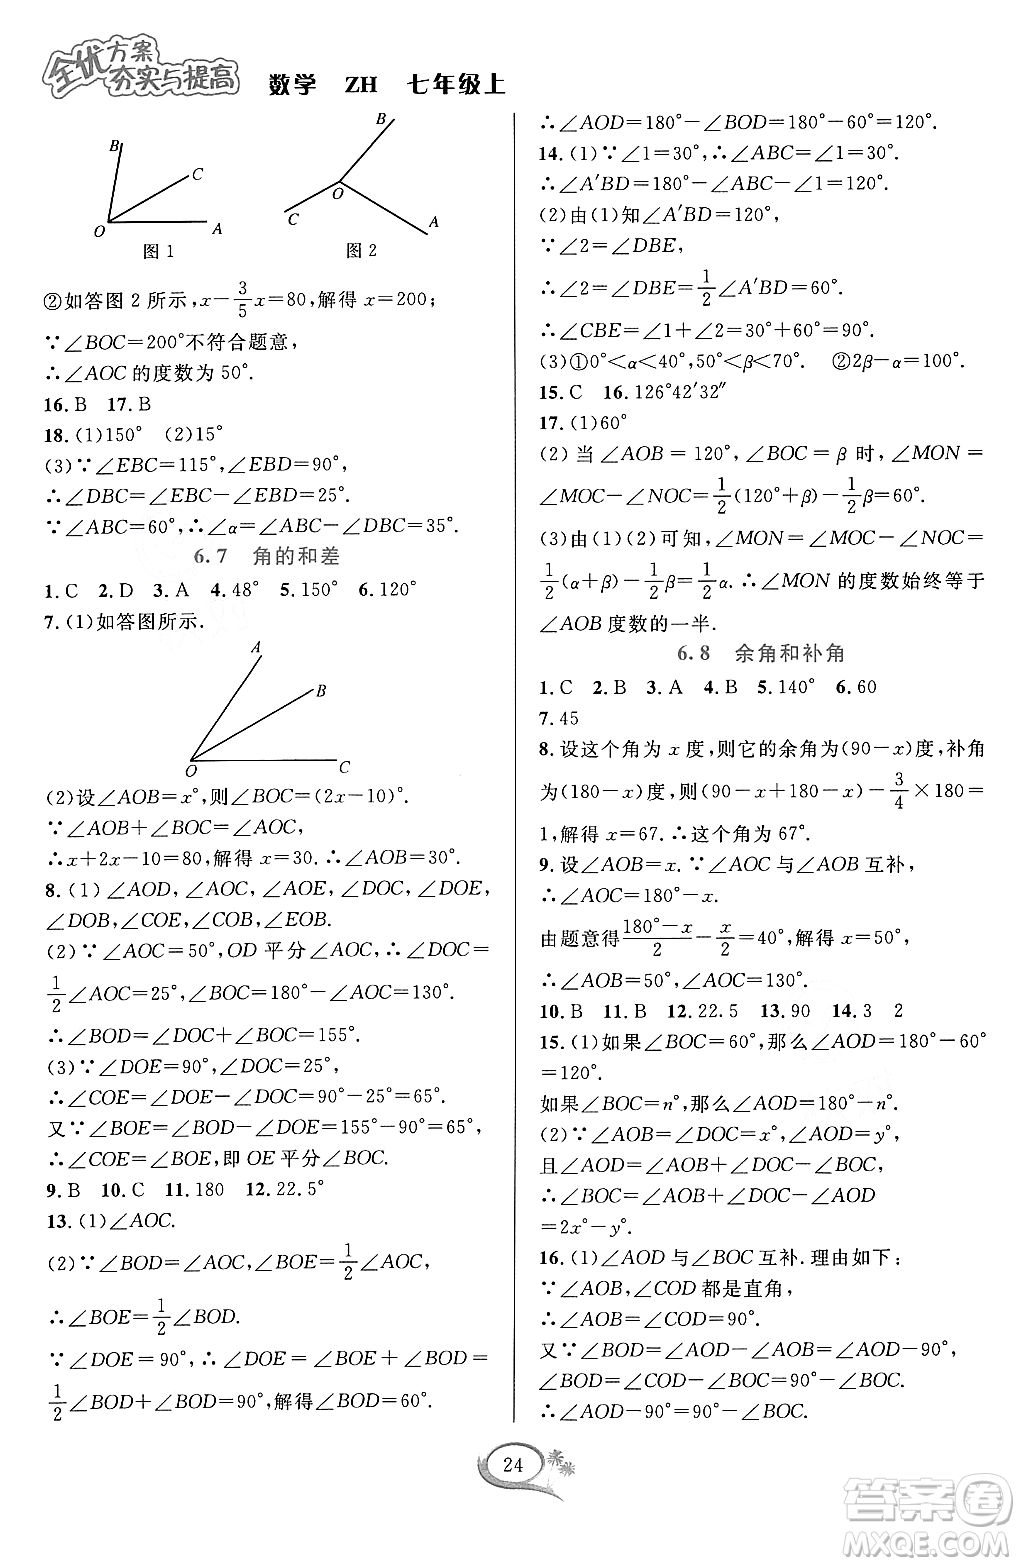 全优方案
夯实与提高
数学 ZH 七年级上
B
C
O
A
图 1
A
O
C
B
A
图 2
②如答图 2 所示,x−3/5x=80,解得 x=200;
∵∠BOC=200°不符合题意,
∴∠AOC 的度数为 50°.
16.B 17.B
18.(1)150° (2)15°
(3)∵∠EBC=115°,∠EBD=90°,
∴∠DBC=∠EBC−∠EBD=25°.
∵∠ABC=60°,∴∠α=∠ABC−∠DBC=35°.
6.7 角的和差
1.C 2.D 3.A 4.48° 5.150° 6.120°
7.(1)如答图所示.
A
B
O
C
(2)设∠AOB=x°,则∠BOC=(2x−10)°.
∵∠AOB+∠BOC=∠AOC,
∴x+2x−10=80,解得 x=30.∴∠AOB=30°.
8.(1)∠AOD,∠AOC,∠AOE,∠DOC,∠DOE,
∠DOB,∠COE,∠COB,∠EOB.
(2)∵∠AOC=50°,OD 平分∠AOC,∴∠DOC=
1/2∠AOC=25°,∠BOC=180°−∠AOC=130°.
∴∠BOD=∠DOC+∠BOC=155°.
(3)∵∠DOE=90°,∠DOC=25°,
∴∠COE=∠DOE−∠DOC=90°−25°=65°.
又∵∠BOE=∠BOD−∠DOE=155°−90°=65°,
∴∠COE=∠BOE,即 OE 平分∠BOC.
9.B 10.C 11.180 12.22.5°
13.(1)∠AOC.
(2)∵∠BOD=∠AOC,∠BOE=1/2∠AOC,
∴∠BOE=1/2∠BOD.
∵∠DOE=90°,∴∠DOE=∠BOE+∠BOD=
1/2∠BOD+∠BOD=90°,解得∠BOD=60°.
∴∠AOD=180°−∠BOD=180°−60°=120°.
14.(1)∵∠1=30°,∴∠ABC=∠1=30°.
∴∠A′BD=180°−∠ABC−∠1=120°.
(2)由(1)知∠A′BD=120°,
∵∠2=∠DBE,
∴∠2=∠DBE=1/2∠A′BD=60°.
∴∠CBE=∠1+∠2=30°+60°=90°.
(3)①0°<α<40°,50°<β<70°. ②2β−α=100°.
15.C 16.126°42′32″
17.(1)60°
(2)当∠AOB=120°,∠BOC=β时,∠MON=
∠MOC−∠NOC=1/2(120°+β)−1/2β=60°.
(3)由(1)(2)可知,∠MON=∠MOC−∠NOC=
1/2(α+β)−1/2β=1/2α.∴∠MON 的度数始终等于
∠AOB 度数的一半.
6.8 余角和补角
1.C 2.B 3.A 4.B 5.140° 6.60
7.45
8.设这个角为 x 度,则它的余角为(90−x)度,补角
为(180−x)度,则(90−x+180−x)−3/4×180=
1,解得 x=67.∴这个角为 67°.
9.设∠AOB=x.∵∠AOC 与∠AOB 互补,
∴∠AOC=180°−x.
由题意得(180°−x)/2−x/2=40°,解得 x=50°,
∴∠AOB=50°,∠AOC=130°.
10.B 11.B 12.22.5 13.90 14.3 2
15.(1)如果∠BOC=60°,那么∠AOD=180°−60°
=120°.
如果∠BOC=n°,那么∠AOD=180°−n°.
(2)∵∠AOB=∠DOC=x°,∠AOD=y°,
且∠AOD=∠AOB+∠DOC−∠BOC,
∴∠BOC=∠AOB+∠DOC−∠AOD
=2x°−y°.
16.(1)∠AOD 与∠BOC 互补.理由如下:
∵∠AOB,∠COD 都是直角,
∴∠AOB=∠COD=90°.
又∵∠BOD=∠AOD−∠AOB=∠AOD−90°,
∠BOD=∠COD−∠BOC=90°−∠BOC,
∴∠AOD−90°=90°−∠BOC.
24
答案圈
MXQE.COM